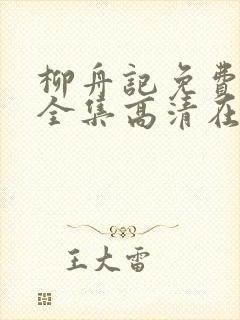 柳舟記免費
全集高清在
王大雷